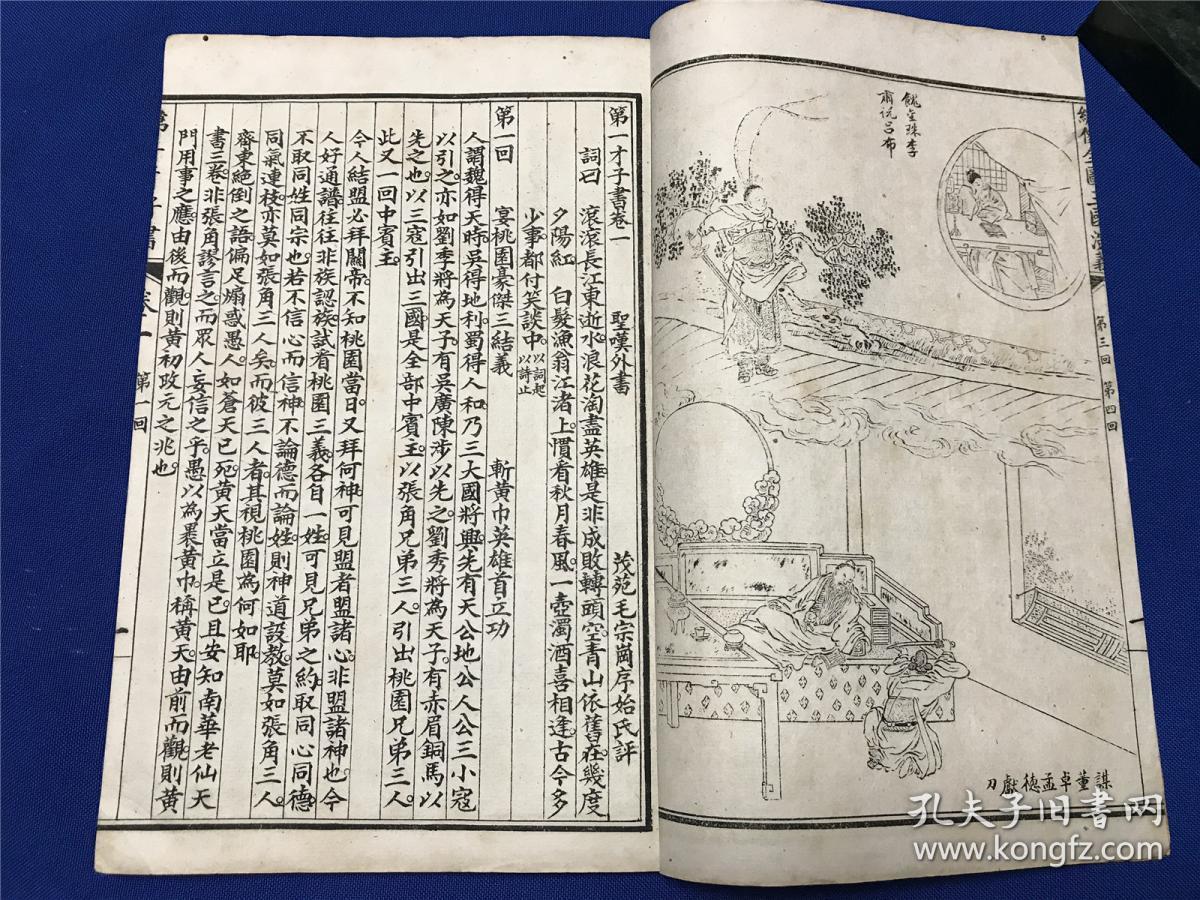 餽金珠李
肅說呂布
第三回 第四回
謀董卓孟德獻刀
第一才子書卷一 聖嘆外書 茂苑毛宗崗序始氏評
詞曰 滾滾長江東逝水浪花淘盡英雄是非成敗轉頭空青山依舊在幾度
夕陽紅 白髮漁翁江渚上慣看秋月春風一壺濁酒喜相逢古今多
少事都付笑談中以詞起以詩止
第一回 宴桃園豪傑三結義 斬黃巾英雄首立功
人謂魏得天時吳得地利蜀得人和乃三大國將興先有天公地公人公三小寇
以引之亦如劉季將為天子有吳廣陳涉以先之劉秀將為天子有赤眉銅馬以
先之也以三寇引出三國是全部中賓主以張角兄弟三人引出桃園兄弟三人
此又一回中賓主
今人結盟必拜關帝不知桃園當日又拜何神可見盟者盟諸心非盟諸神也今
人好通譜往往非族認族試看桃園三義各自一姓可見兄弟之約取同心同德
不取同姓同宗也若不信心而信神不論德而論姓則神道設教莫如張角三人
同氣連枝亦莫如張角三人矣而彼三人者其視桃園為何如耶
齊東絕倒之語偏足煽惑愚人如蒼天已死黃天當立是已且安知南華老仙天
書三卷非張角謬言之而眾人妄信之乎愚以為裹黃巾稱黃天由前而觀則黃
門用事之應由後而觀則黃初改元之兆也
第一回
孔夫子旧书网
www.kongfz.com